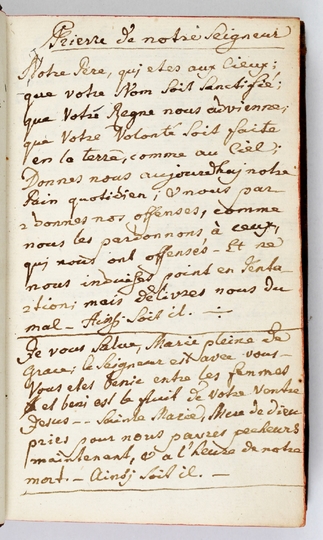 Prierre de notre Seigneur
Notre Pere, qui etes aux Cieux;
que votre Nom soit sanctifié;
que Votre Regne nous advienne;
que Votre Volonté soit faite
en la terre, comme au Ciel;
Donnes nous aujourdhuy notre
Pain quotidien; & nous par-
donnes nos offenses, comme
nous les pardonnons à ceux,
qui nous ont offensés - Et ne
nous induises point en Tenta-
tion; mais delivres nous du
mal - Ainsj soit il. -
Je vous salue, Marie pleine de
Grace; le Seigneur est avec vous -
Vous etes benie entre les femmes
& et beni est le fruit de votre Ventre
Jesus - - Sainte Marie, Mere de dieu
pries pour nous pauvres pecheurs
maintenant, & a l'heure de notre
mort. - Ainsj soit il. -